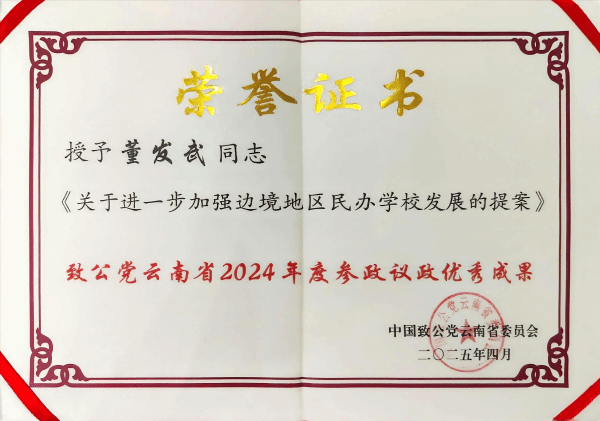 荣誉证书
授予董发武同志
《关于进一步加强边境地区民办学校发展的提案》
致公党云南省2024年度参政议政优秀成果
中国致公党云南省委员会
二〇二五年四月